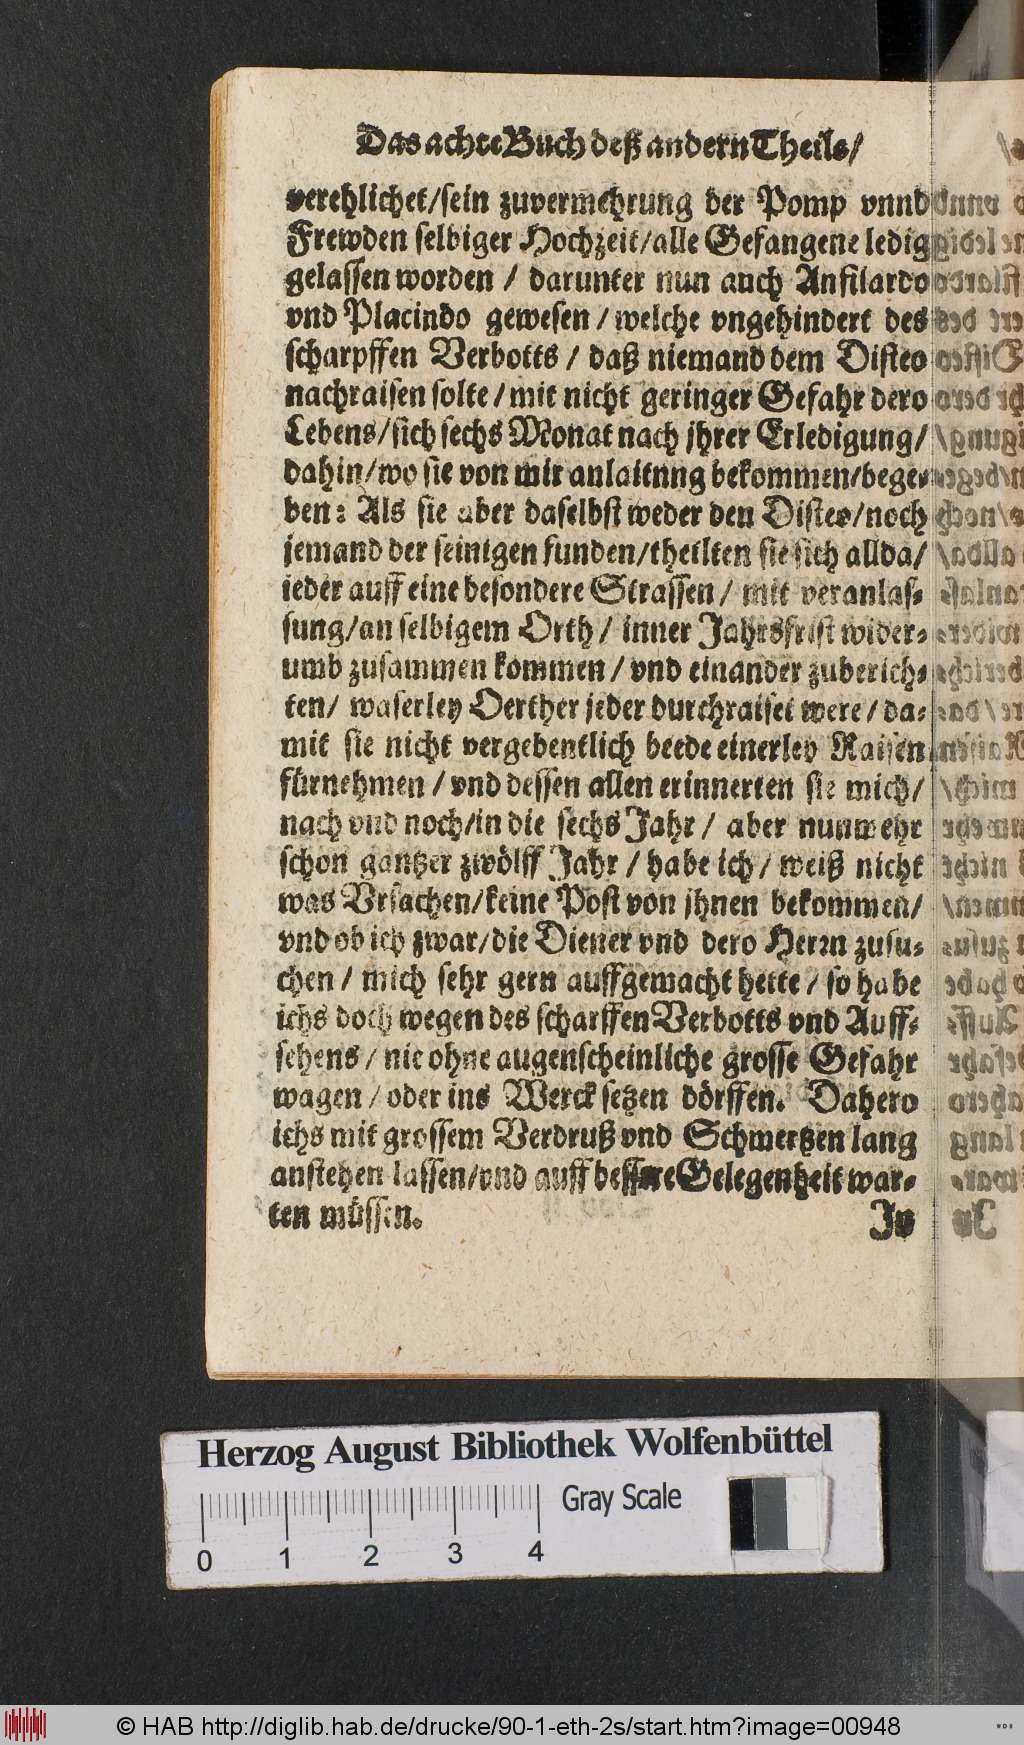 Das achte Buch deß andern Theils/
verehlichet/sein zuvermehrung der Pomp vnnd
Frewden selbiger Hochzeit/alle Gefangene ledig
gelassen worden / darunter nun auch Anfilardo
vnd Placindo gewesen / welche vngehindert des
scharpffen Verbotts / daß niemand dem Disteo
nachraisen solte / mit nicht geringer Gefahr dero
Lebens/sich sechs Monat nach jhrer Erledigung/
dahin/wo sie von mir anlaitnng bekommen/bege-
ben: Als sie aber daselbst weder den Disteo/noch
jemand der seinigen funden/theilten sie sich allda/
jeder auff eine besondere Strassen / mit veranlas-
sung/an selbigem Orth / inner Jahrsfrist wider-
umb zusammen kommen / vnd einander zuberich-
ten/ waserley Oerther jeder durchraiset were / da-
mit sie nicht vergebentlich beede einerley Raisen
fürnehmen / vnd dessen allen erinnerten sie mich/
nach vnd noch/in die sechs Jahr / aber nunmehr
schon gantzer zwölff Jahr / habe ich / weiß nicht
was Vrsachen/keine Post von jhnen bekommen/
vnd ob ich zwar/die Diener vnd dero Herrn zusu-
chen / mich sehr gern auffgemacht hette / so habe
ichs doch wegen des scharffen Verbotts vnd Auff-
sehens / nie ohne augenscheinliche grosse Gefahr
wagen / oder ins Werck setzen dörffen. Dahero
ichs mit grossem Verdruß vnd Schmertzen lang
anstehen lassen/vnd auff bessere Gelegenheit war-
ten müssen.
Jn
Herzog August Bibliothek Wolfenbüttel
Gray Scale
0 1 2 3 4
© HAB http://diglib.hab.de/drucke/90-1-eth-2s/start.htm?image=00948